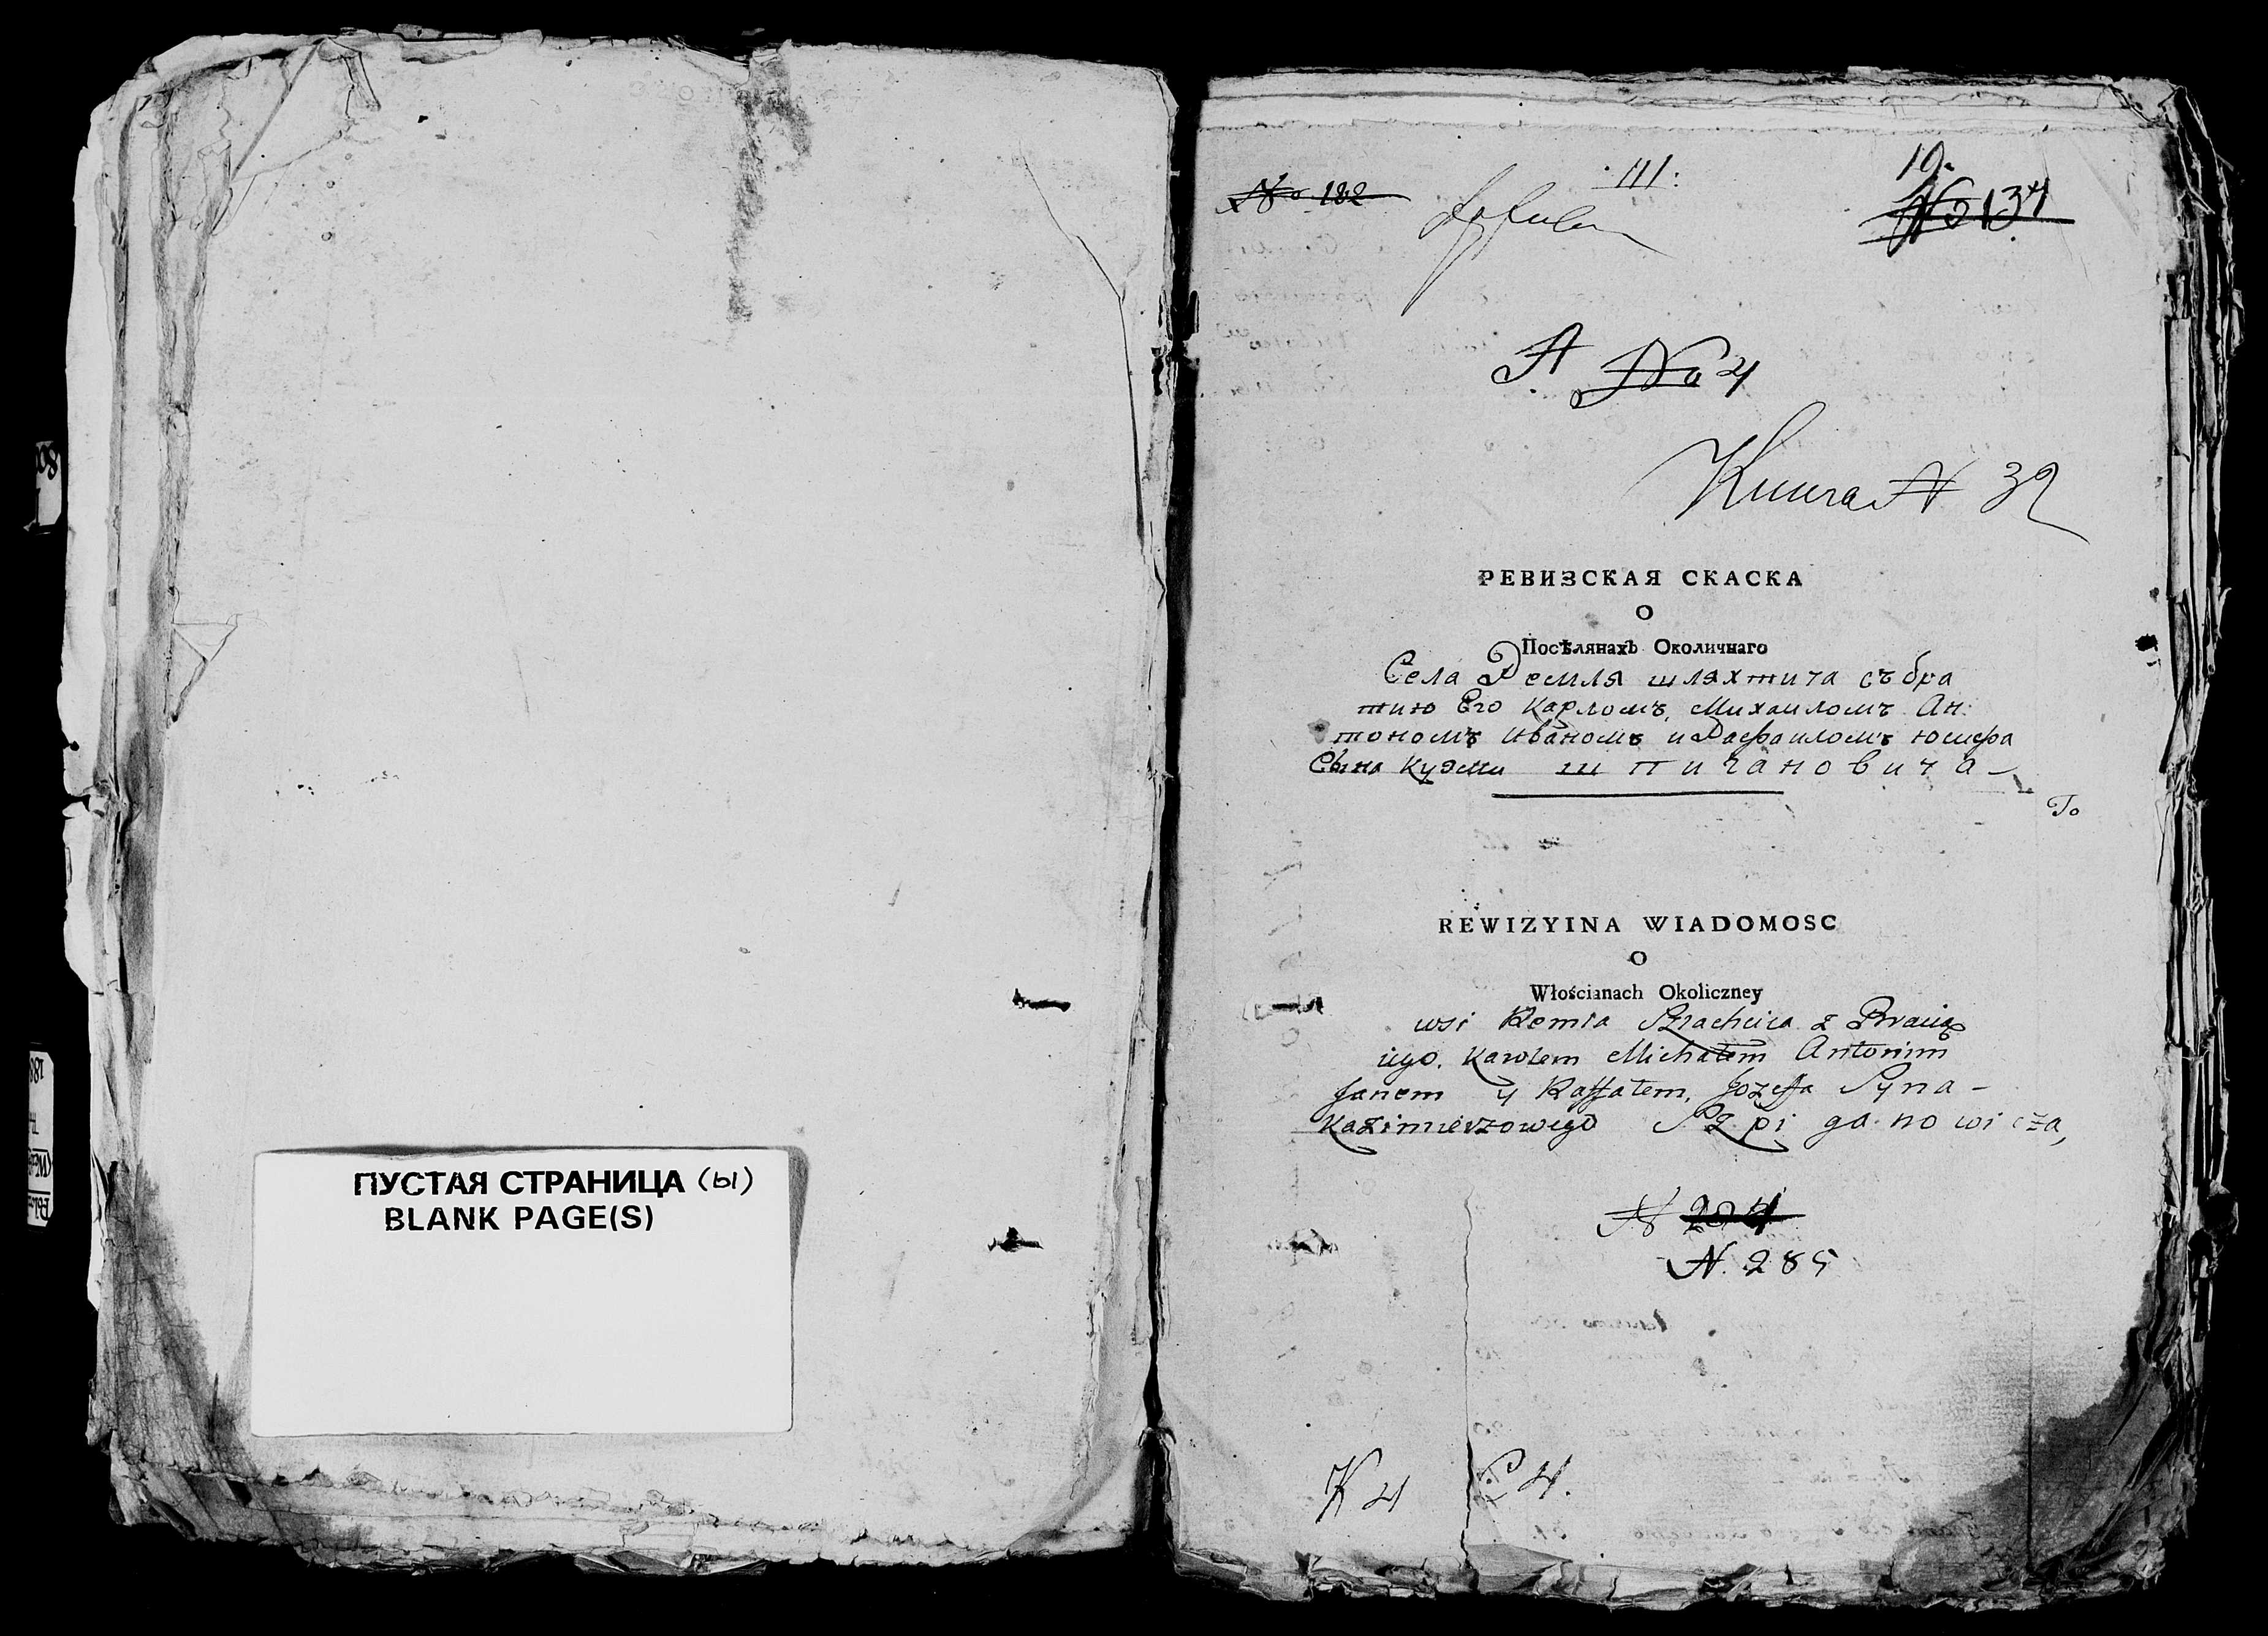 ПУСТАЯ СТРАНИЦА (ы)
BLANK PAGE(S)
No 122
111.
10.
No 134
A No 4
Книга N 32
РЕВИЗСКАЯ СКАСКА
О
Посѣлянахъ Околичнаго
Села Ремля шляхтича съ бра
тию Его Карломъ, Михаиломъ Ан:
тономъ Иваномъ и Рафаиломъ юзефа
Сына Кузми шпигановича
То
REWIZYINA WIADOMOSC
O
Włościanach Okoliczney
wsi Remla Szlachcica z Bracią
iego. Karolem Michałem Antonim
Janem y Raffałem, Jozeffa Syna -
Kazimierzowego Szpiganowicza,
N 204
N. 285
K 4 C 4.